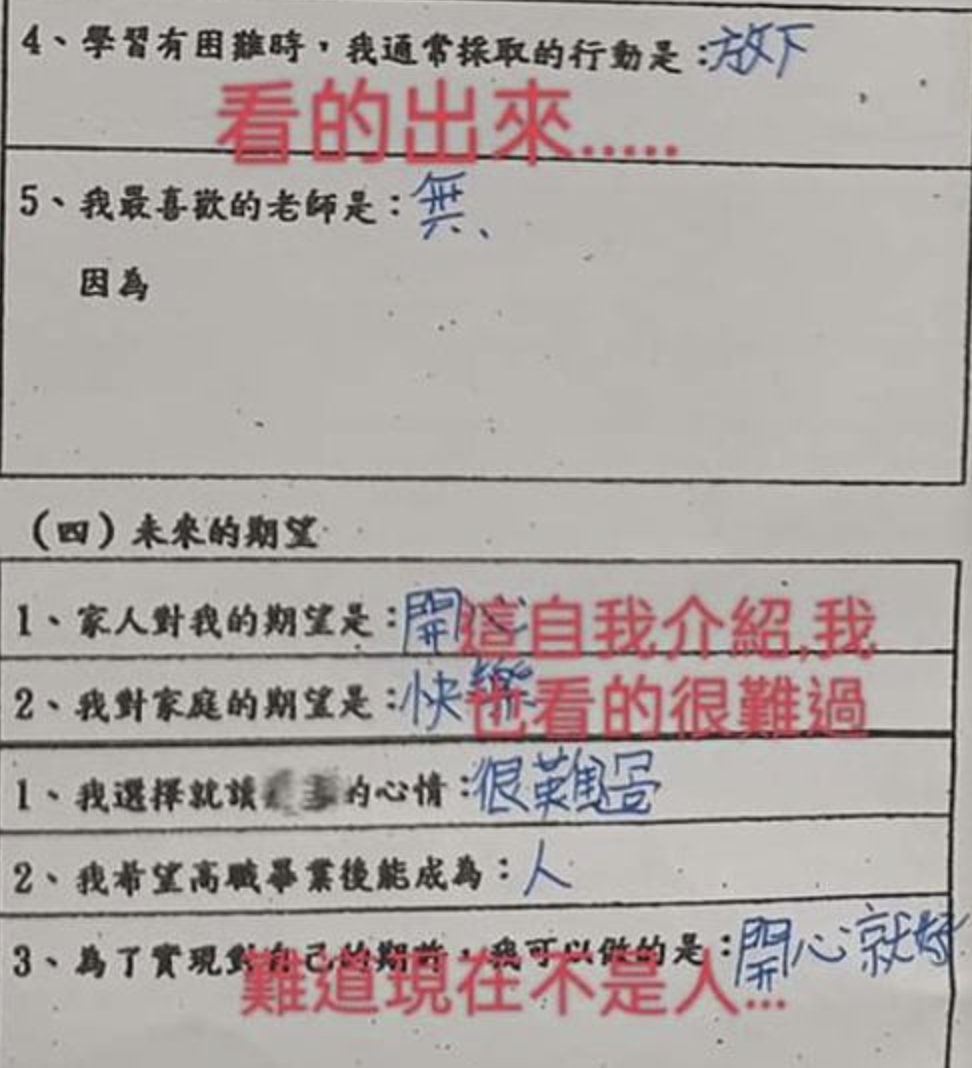 4、學習有困難時，我通常採取的行動是：放下
看的出來.....
5、我最喜歡的老師是：無、
因為
（四）未來的期望
1、家人對我的期望是：開心
這自我介紹,我
2、我對家庭的期望是：快樂
也看的很難過
1、我選擇就讀 的心情：很難過
2、我希望高職畢業後能成為：人
3、為了實現對自己的期許，我可以做的是：開心就好
難道現在不是人...